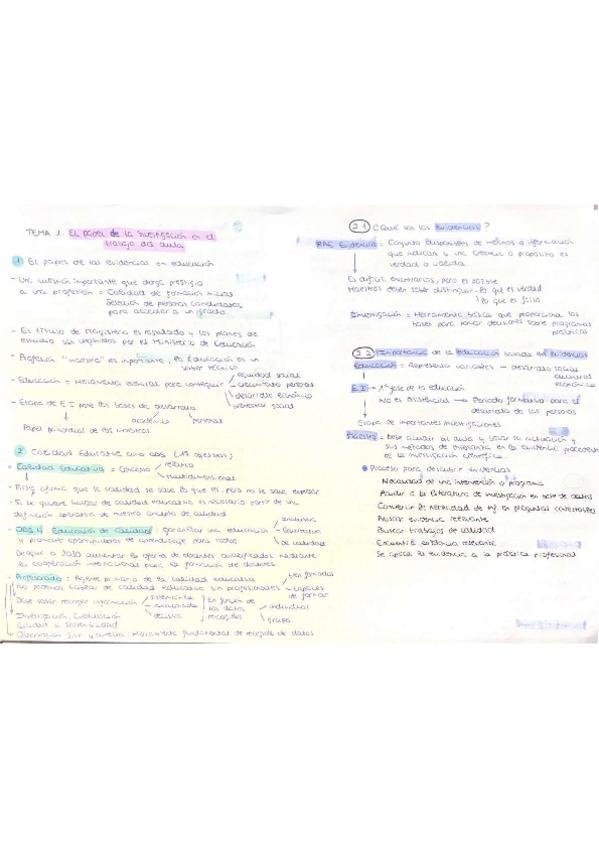 TEMA 1. El papel de la investigación en el
trabajo del aula
1 El papel de las evidencias en educación
- Una cuestión importante que otorga prestigio
a una profesión = Calidad de formación inicial
Selección de personas candidatas
para acceder a un grado.
- Es título de Magisterio es regulado y los planes de
estudio son regidos por el Ministerio de Educación
- Profesión "maestro" es importante, la Educación es un
sector técnico
- Educación = Herramienta esencial para conseguir
equidad social
crecimiento personal
desarrollo económico
bienestar social
- Etapa de E.I = pone las bases de desarrollo
académico
personal
Papel primordial de los maestros
2 Calidad Educativa como ODS (
- Calidad Educativa = Concepto
relativo
multidimensional
- afirma que la calidad se sabe lo que es, pero no se sabe expresar
- Si se quiere hablar de calidad educativa es necesario partir de una
definición operativa de nuestro concepto de calidad
- ODS 4 Educación de Calidad: garantizar una educación
inclusiva
equitativa
de calidad
y promover oportunidades de aprendizaje para todos
De aquí a 2030 aumentar la oferta de docentes cualificados mediante
la cooperación internacional para la formación de docentes
- Profesorado: Agente primario de la calidad educativa
No podemos hablar de calidad educativa sin profesionales
bien formados
capaces de
formar
Debe saber recoger información
decisiva
En función de
los datos
recogidos
individual
grupo
Investigación, Evaluación
Calidad y Sostenibilidad
Observación : Herramienta fundamental de recogida de datos
2.1 ¿Qué son las evidencias?
RAE Evidencia = Conjunto disponibles de hechos o información
que indican si una creencia o propósito es
verdad o válida
Es difícil encontrarlas, pero el
Maestros deben saber distinguir - lo que es verdad
lo que es falso
Investigación = Herramienta básica que proporciona las
bases para tomar decisiones sobre programas
prácticas
2.2 Importancia de la Educación basada en Evidencias
Educación = Representa variables - desarrollo social
cultural
económico
E.I - 1ª fase de la educación
No es asistencial - Periodo formativo para el
desarrollo de las personas
Etapa de importantes investigaciones
Maestro = Debe acudir al aula y basar la actuación y
sus métodos de enseñanza en la evidencia procedente
de la investigación científica.
Proceso para descubrir evidencias
Necesidad de una intervención o programa
Acudir a la literatura de investigación en base de datos
Convertir la necesidad de inf. en preguntas contestables
Buscar evidencia relevante
Buscar trabajos de calidad
Encuentre evidencia relevante
Se aplica la evidencia a la práctica profesional